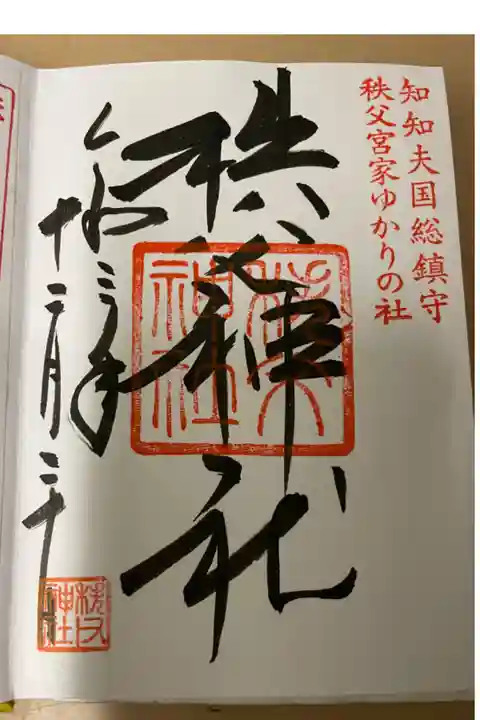 知知夫国総鎮守
秩父宮家ゆかりの社
秩父神社
秩父
神社
令和三年
十二月二十
秩父
神社